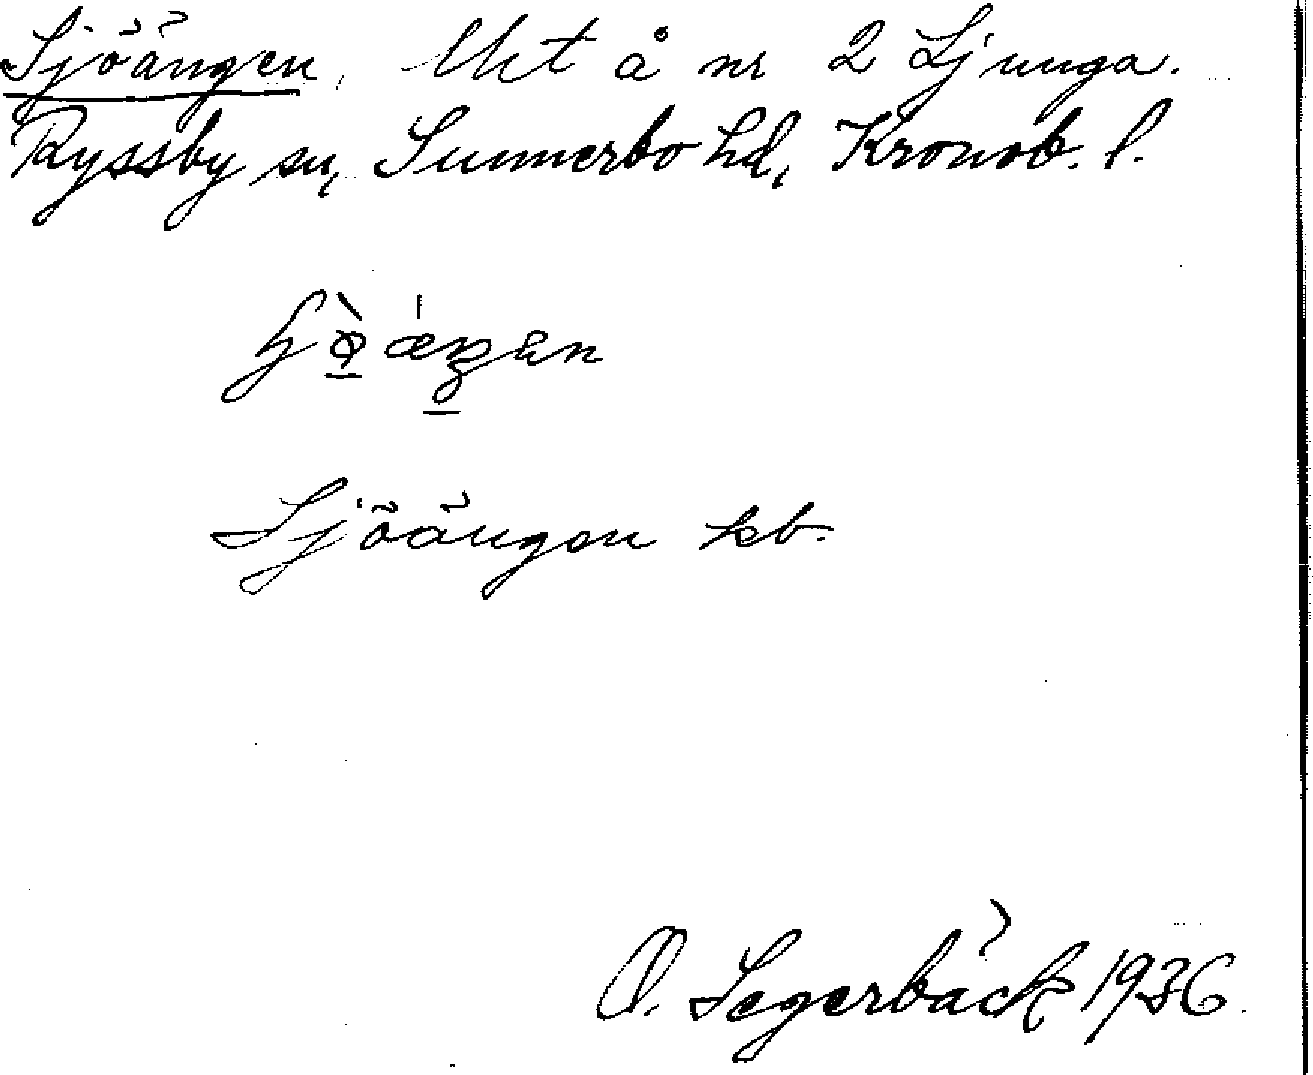 Sjöängen, Uht å nr 2 Ljunga.
Ryssby sn, Sunnerbo hd, Kronob. l.
Sjöängen kb.
O. Segerbäck 1936.